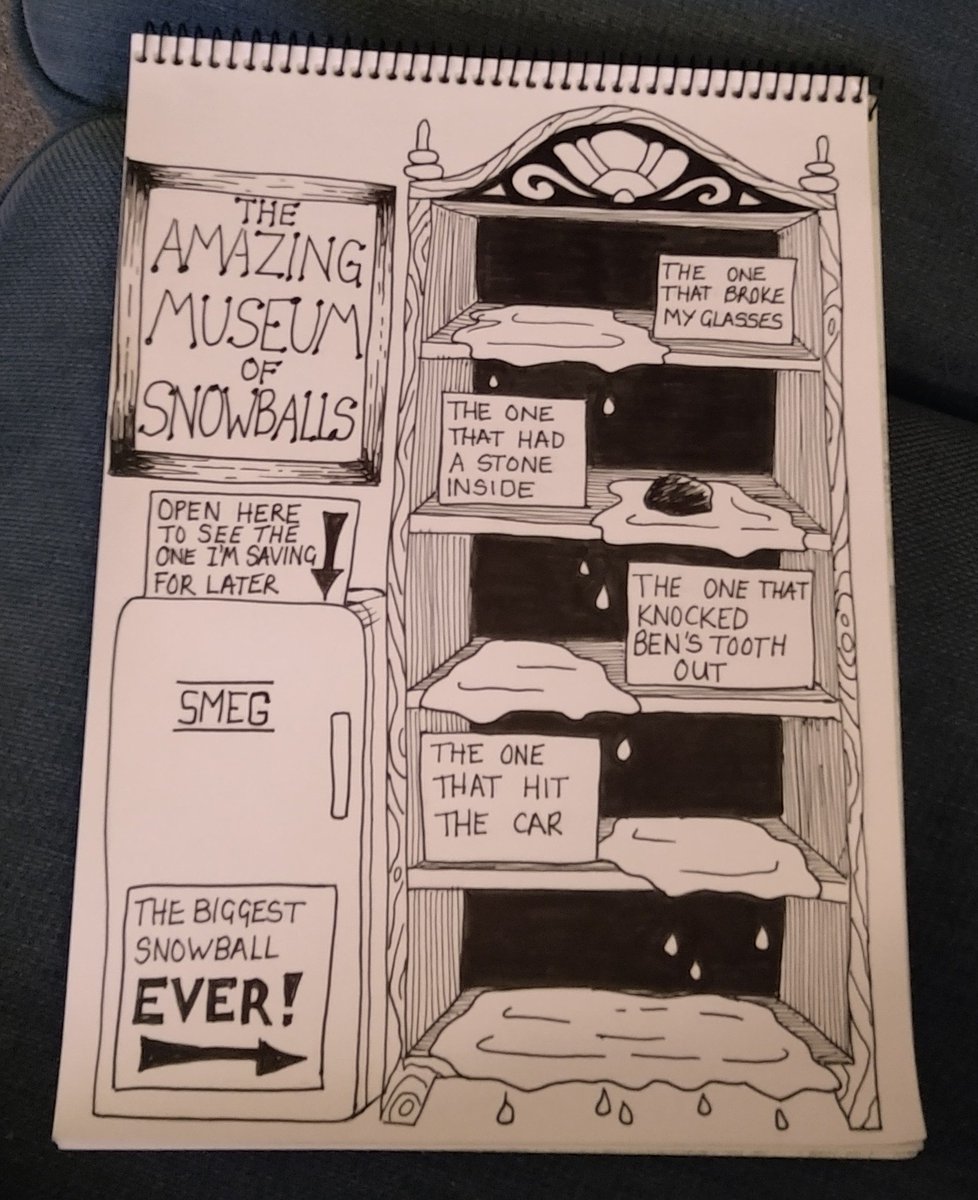 THE
AMAZING
MUSEUM
OF
SNOWBALLS
OPEN HERE
TO SEE THE
ONE I'M SAVING
FOR LATER
SMEG
THE BIGGEST
SNOWBALL
EVER!
THE ONE
THAT BROKE
MY GLASSES
THE ONE
THAT HAD
A STONE
INSIDE
THE ONE THAT
KNOCKED
BEN'S TOOTH
OUT
THE ONE
THAT HIT
THE CAR